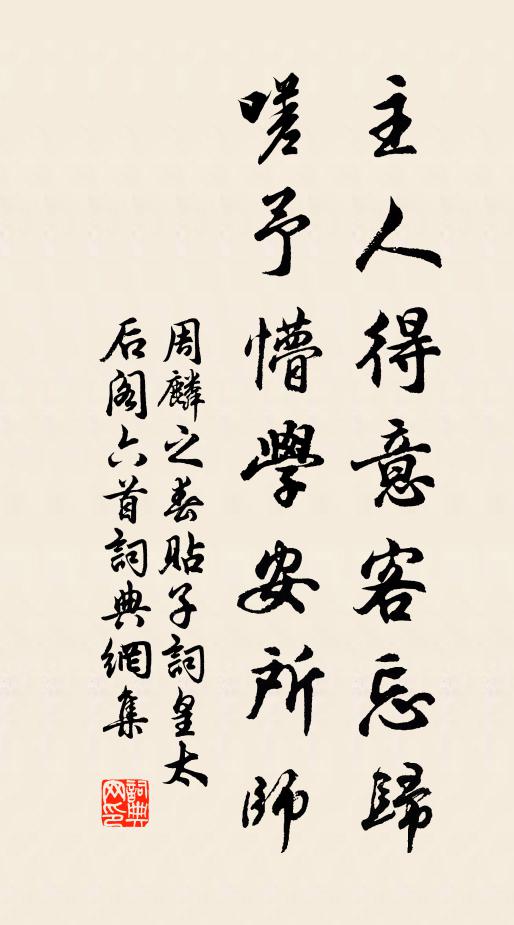 主人得意客忘歸
嗟予懵學安所師
周麟之春貼子詞皇太
后閣六首詞典網集
詞典
网印